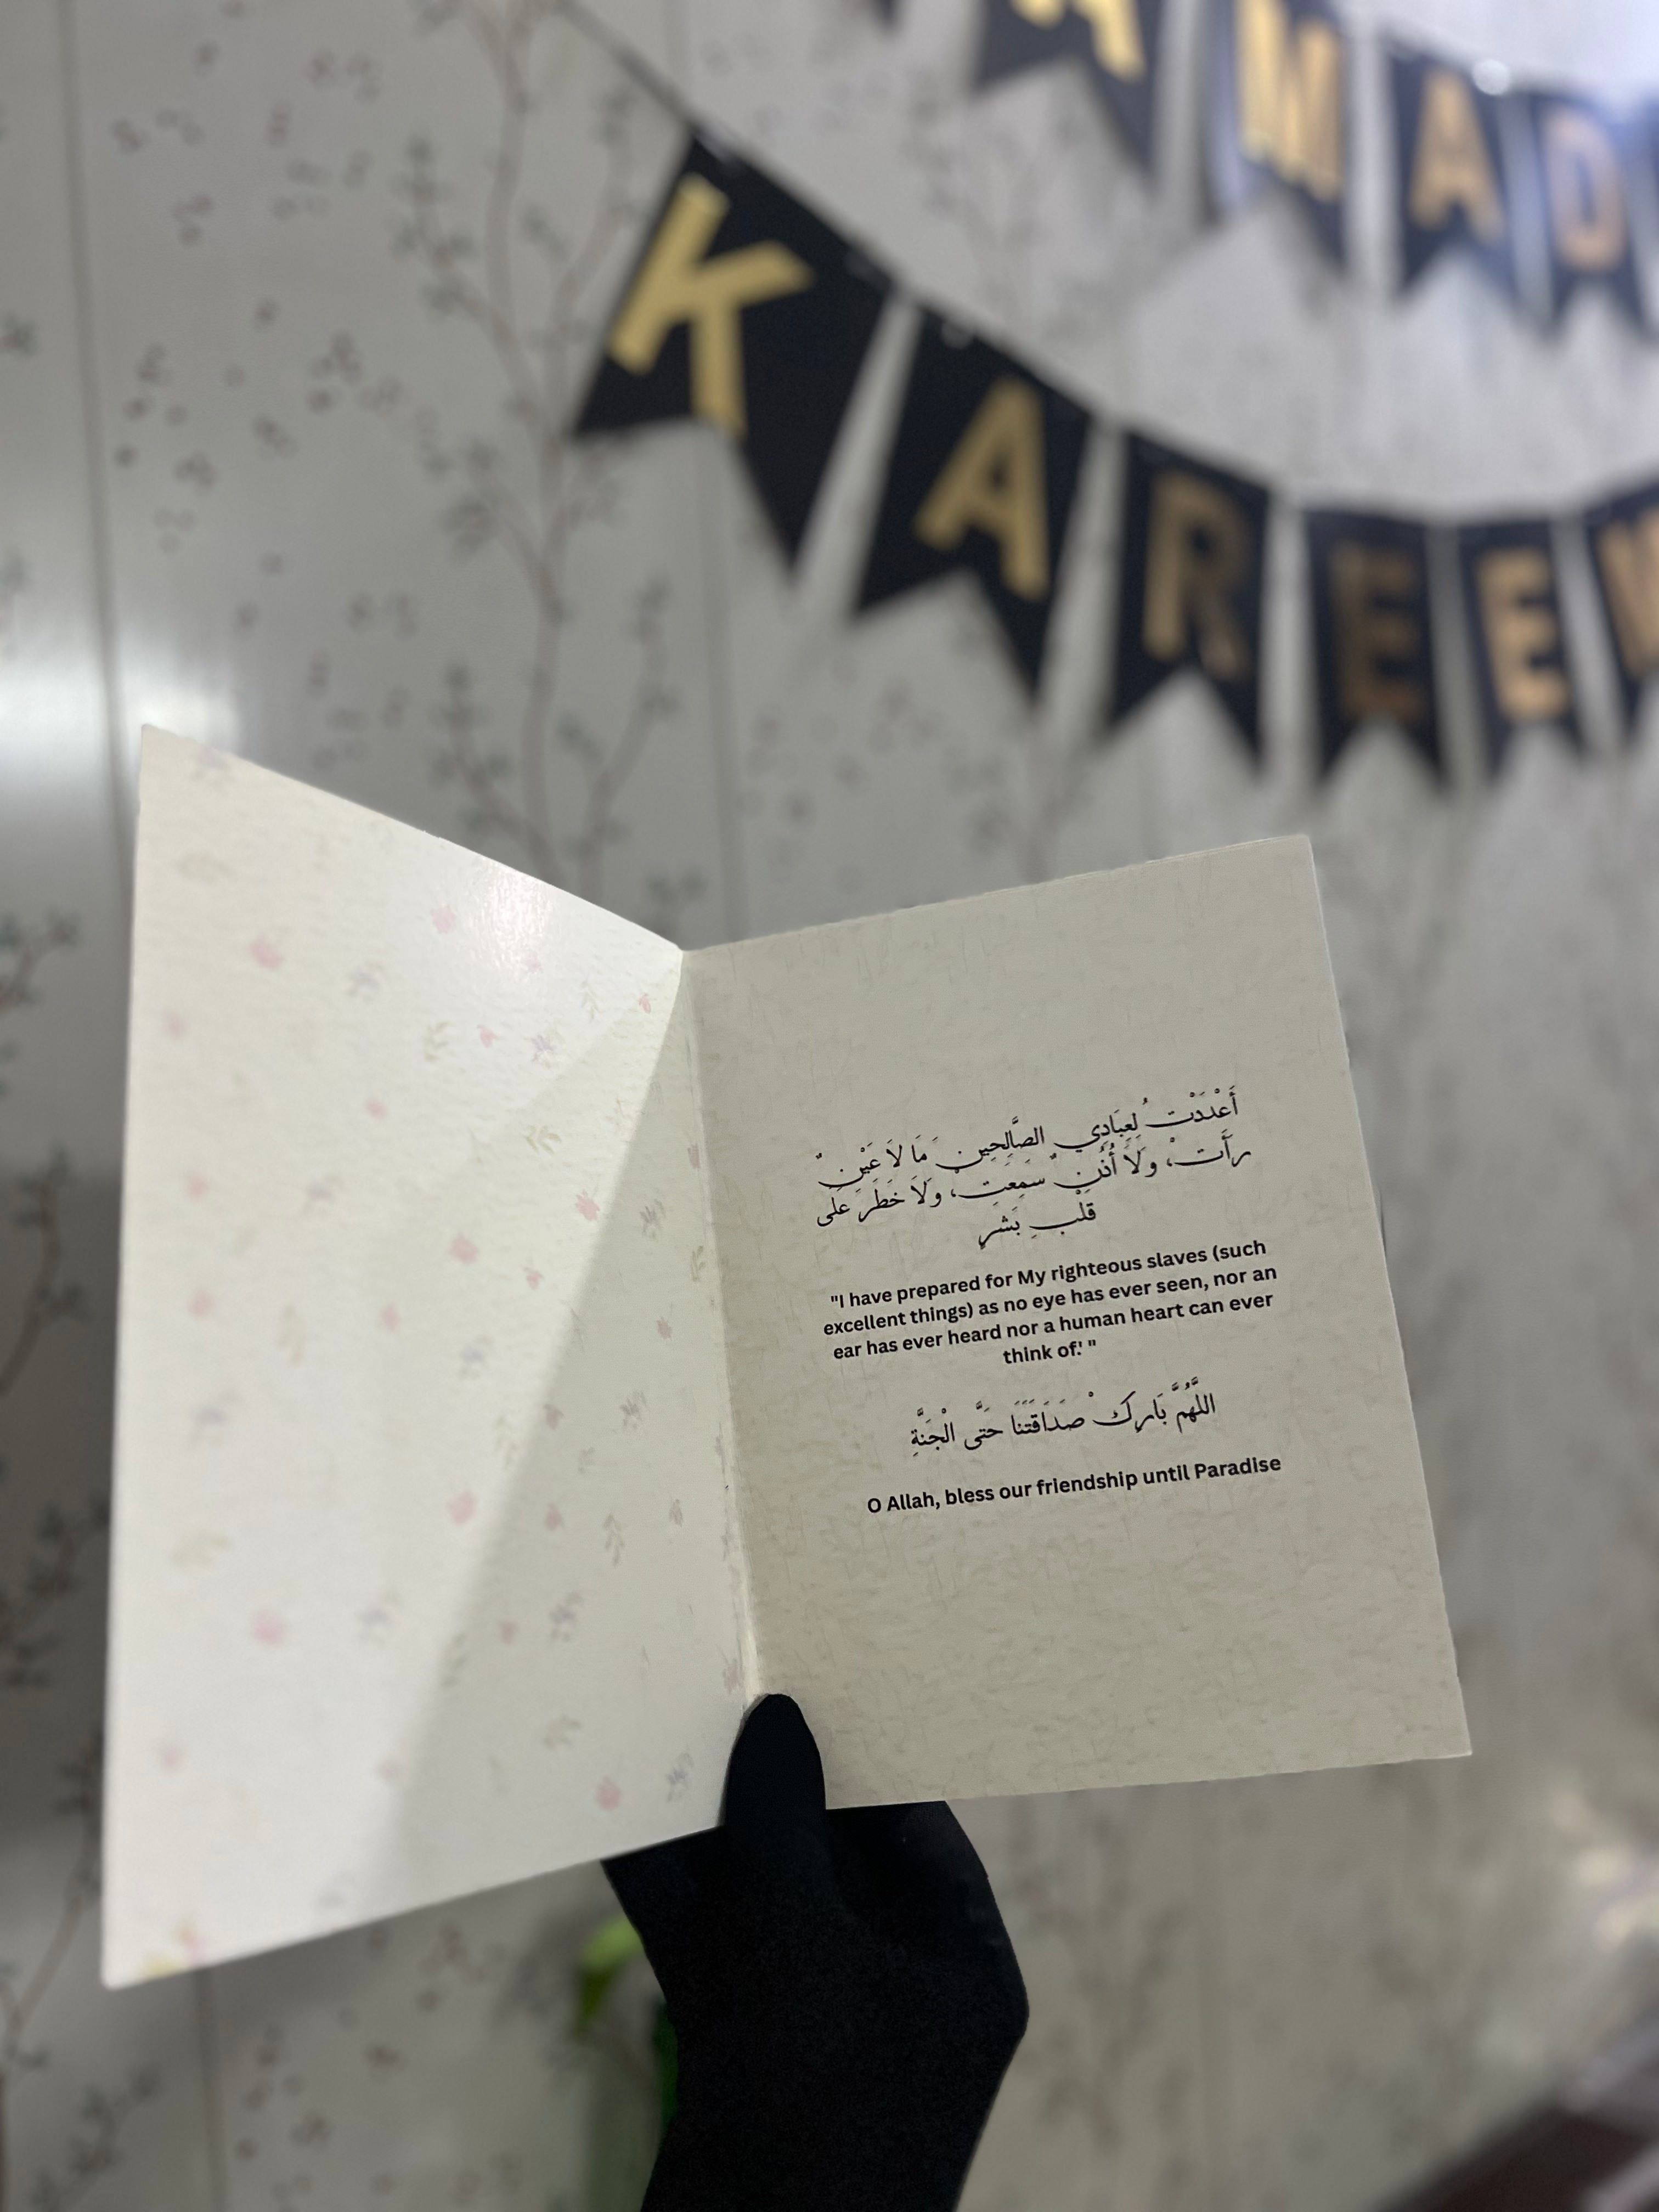 AMAD
KAREE
أَعْدَدْتُ لِعِبَادِي الصَّالِحِينَ مَا لَا عَيْنٌ
رَأَتْ، وَلَا أُذُنٌ سَمِعَتْ، وَلَا خَطَرَ عَلَى
قَلْبِ بَشَرٍ
"I have prepared for My righteous slaves (such
excellent things) as no eye has ever seen, nor an
ear has ever heard nor a human heart can ever
think of.' "
اللَّهُمَّ بَارِكْ صَدَاقَتَنَا حَتَّى الْجَنَّةِ
O Allah, bless our friendship until Paradise